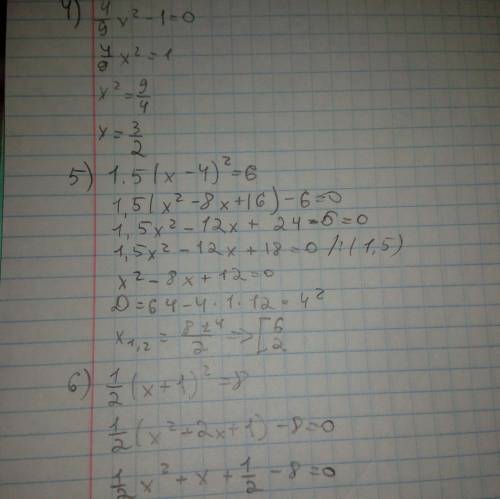 4) 4/9 x² - 1 = 0
4/9 x² = 1
x² = 9/4
x = 3/2
5) 1.5(x - 4)² = 6
1,5(x² - 8x + 16) - 6 = 0
1,5x² - 12x + 24 - 6 = 0
1,5x² - 12x + 18 = 0 /:(1,5)
x² - 8x + 12 = 0
D = 64 - 4 · 1 · 12 = 4²
x₁,₂ = (8 ± 4)/2 => [6 2
6) 1/2 (x + 1)² = 8
1/2 (x² + 2x + 1) - 8 = 0
1/2 x² + x + 1/2 - 8 = 0